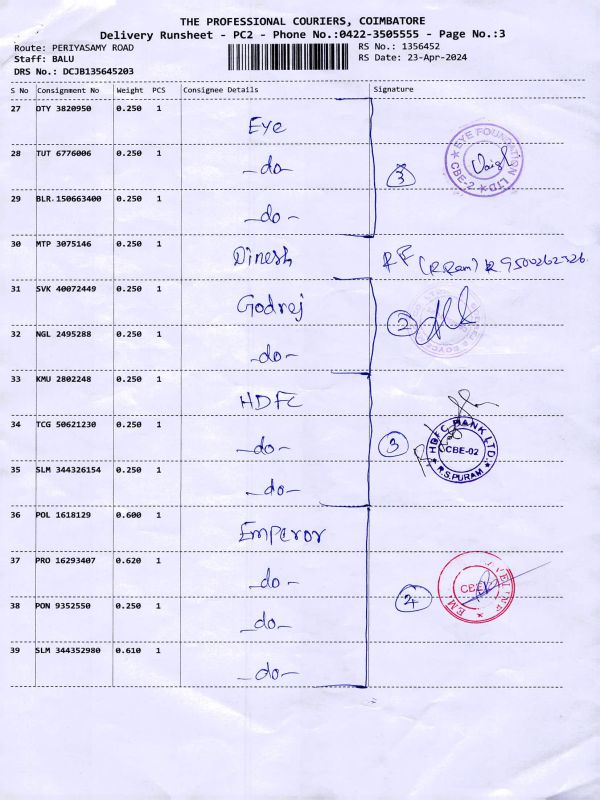 THE PROFESSIONAL COURIERS, COIMBATORE
Delivery Runsheet - PC2 - Phone No.:0422-3505555 - Page No.:3
Route: PERIYASAMY ROAD
RS No.: 1356452
Staff: BALU
RS Date: 23-Apr-2024
DRS No.: DCJB135645203
S No Consignment No Weight PCS Consignee Details Signature
27 DTY 3820950 0.250 1 Eye
28 TUT 6776006 0.250 1 -do- 3 EYE FOUNDATION LTD CBE-2
29 BLR 150663400 0.250 1 -do-
30 MTP 3075146 0.250 1 Dinesh (R.Ram) 9500262326
31 SVK 40072449 0.250 1 Godrej
32 NGL 2495288 0.250 1 -do- 2
33 KMU 2802248 0.250 1 HDFC
34 TCG 50621230 0.250 1 -do- 3 HDFC BANK LTD. CBE-02 R.S.PURAM
35 SLM 344326154 0.250 1 -do-
36 POL 1618129 0.600 1 Emperor
37 PRO 16293407 0.620 1 -do-
38 PON 9352550 0.250 1 -do- 4
39 SLM 344352980 0.610 1 -do-